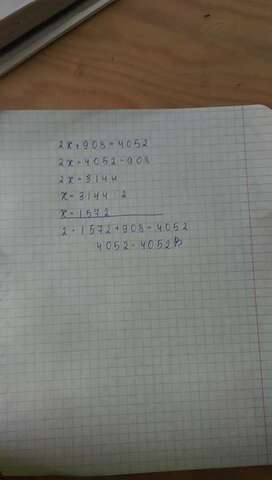 2x+908=4052
2x=4052-908
2x=3144
x=3144:2
x=1572
2·1572+908=4052
4052=4052